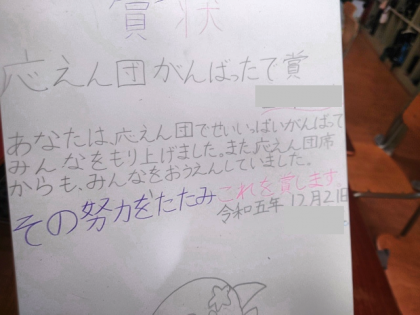 賞状
応えん団がんばったで賞
あなたは、応えん団でせいいっぱいがんばって
みんなをもり上げました。また応えん団席
からも、みんなをおうえんしていました。
その努力をたたみこれを賞します
令和五年 12月21日